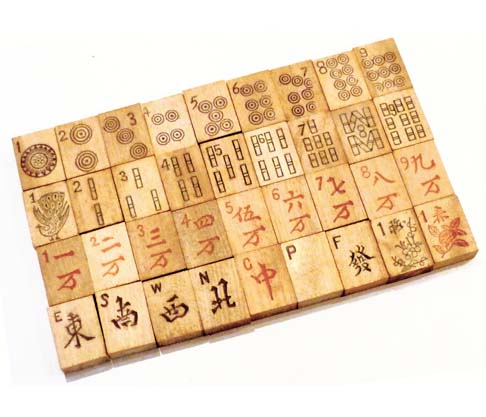 1 2 3 4 5 6 7 8 9
1 2 3 4 5 6 7 8 9
1 一万 2 二万 3 三万 4 四万 5 伍万 6 六万 7 七万 8 八万 9 九万
E 東 S 南 W 西 N 北 C 中 P F 發 1 1